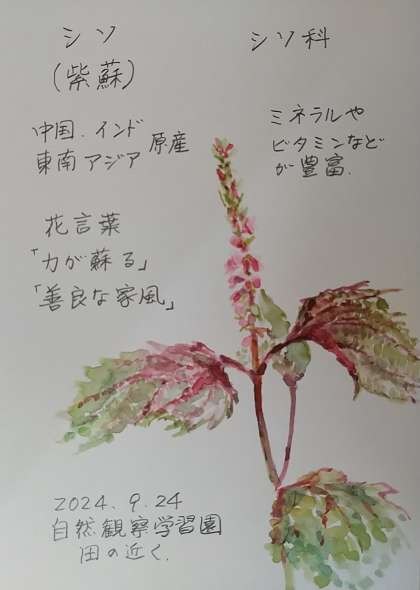 シソ
(紫蘇)
シソ科
中国．インド
東南アジア
原産
ミネラルや
ビタミンなど
が豊富．
花言葉
「力が蘇る」
「善良な家風」
2024．9．24
自然観察学習園
田の近く．